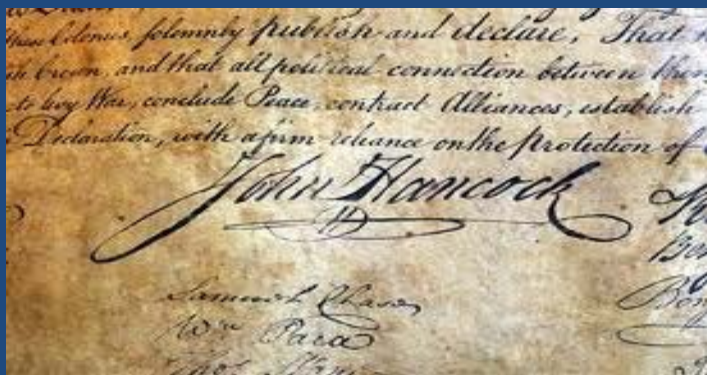 these Colonies, solemnly publish and declare, That
and that all political connection between them
to levy War, conclude Peace, contract Alliances, establish
Declaration, with a firm reliance on the Protection of
John Hancock
Samuel Chase
Wm Paca
Thos